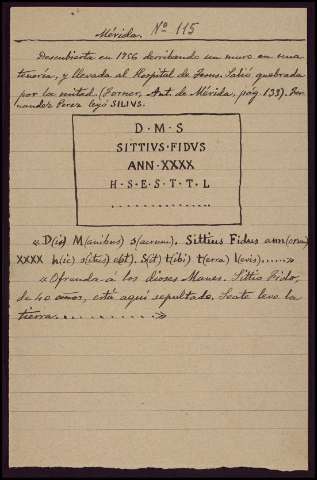 Mérida. Nº 115
Descubierta en 1756 derribando un muro en una
tenería, y llevada al Hospital de Jesus. Salió quebrada
por la mitad. (Forner, Ant. de Mérida, pág. 139). Fer-
nandez Perez leyó SILIVS.
D · M · S
SITTIVS · FIDVS
ANN · XXXX
H · S · E · S · T · T · L
. . . . . . . . . . . . . .
«D(is) M(anibus) s(acrum). Sittius Fidus ann(orum)
XXXX h(ic) s(itus) est). S(it) t(ibi) t(erra) l(evis).....»
«Ofrenda á los dioses Manes. Sittio Fido,
de 40 años, está aquí sepultado. Seate leve la
tierra. . . . . . . . . . . . »